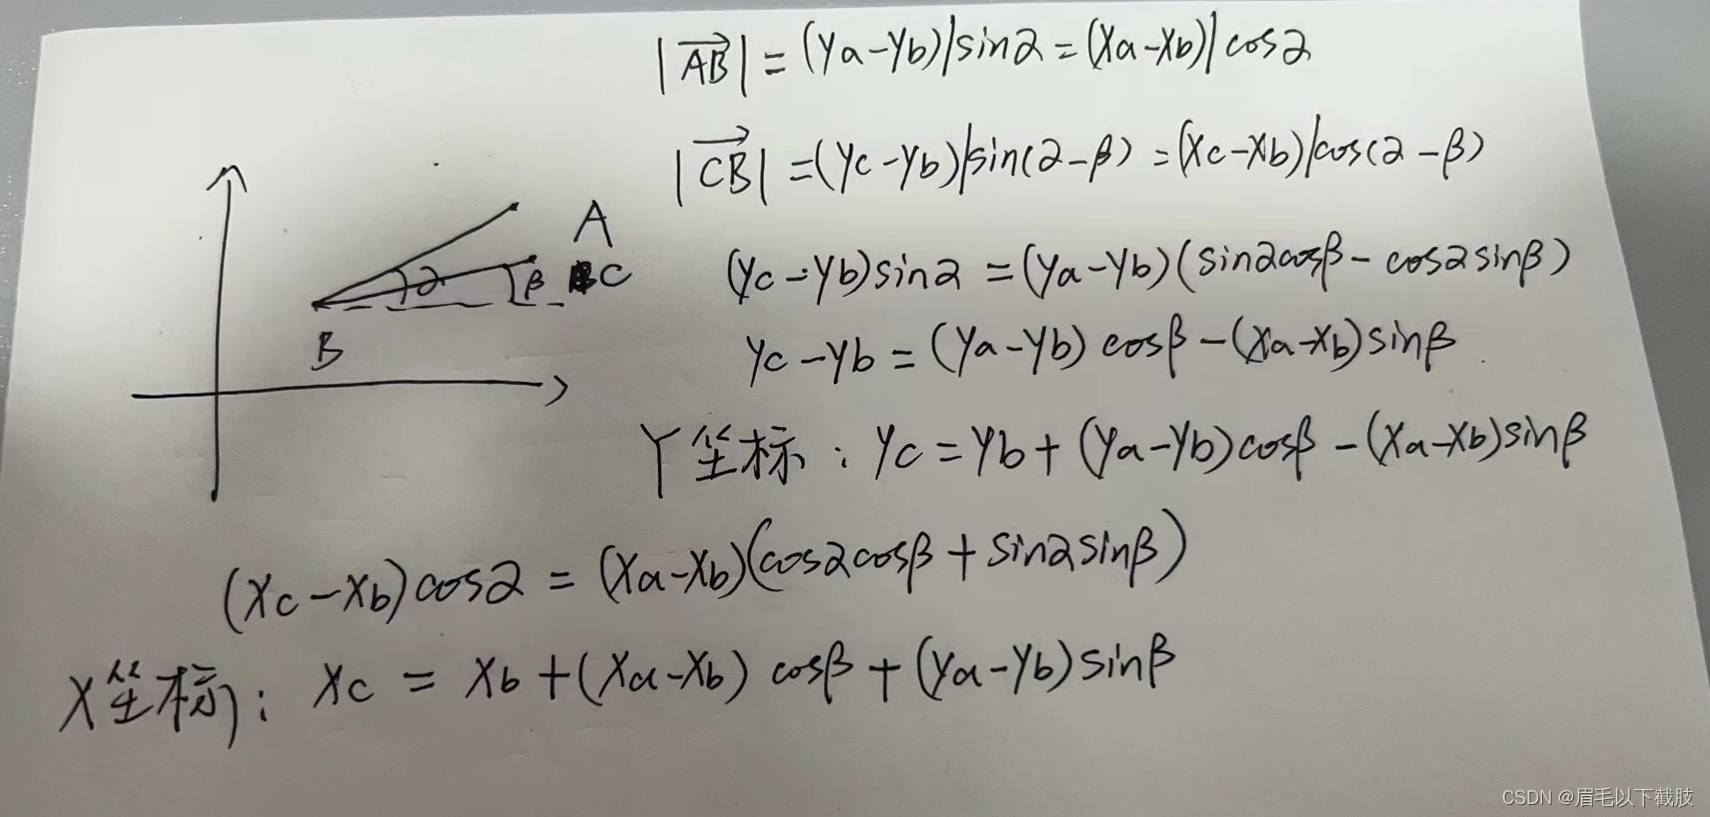 |AB| = (Ya-Yb)/sinα = (Xa-Xb)/cosα
|CB| = (Yc-Yb)/sin(α-β) = (Xc-Xb)/cos(α-β)
A
α β C
B
(Yc-Yb)sinα = (Ya-Yb)(sinαcosβ - cosαsinβ)
Yc-Yb = (Ya-Yb)cosβ - (Xa-Xb)sinβ
Y坐标: Yc = Yb + (Ya-Yb)cosβ - (Xa-Xb)sinβ
(Xc-Xb)cosα = (Xa-Xb)(cosαcosβ + sinαsinβ)
X坐标: Xc = Xb + (Xa-Xb)cosβ + (Ya-Yb)sinβ
CSDN @眉毛以下截肢